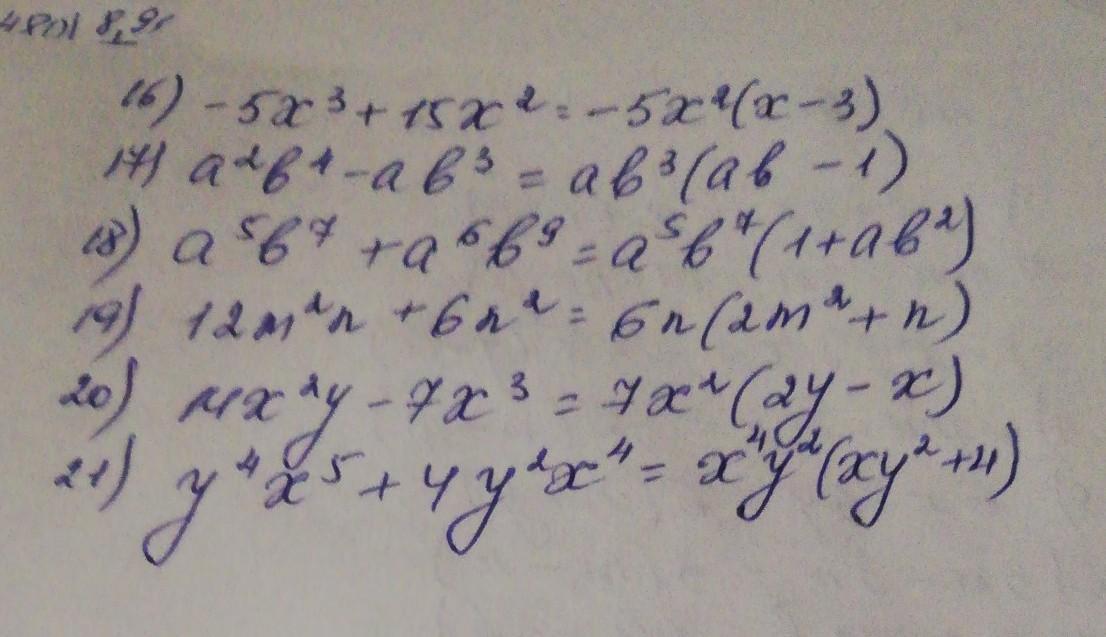 16) -5x³ + 15x² = -5x²(x - 3)
17) a²b⁴ - ab³ = ab³(ab - 1)
18) a⁵b⁷ + a⁶b⁹ = a⁵b⁷(1 + ab²)
19) 12m²n + 6n² = 6n(2m² + n)
20) 14x²y - 7x³ = 7x²(2y - x)
21) y⁴x⁵ + 4y²x⁴ = x⁴y²(xy² + 4)